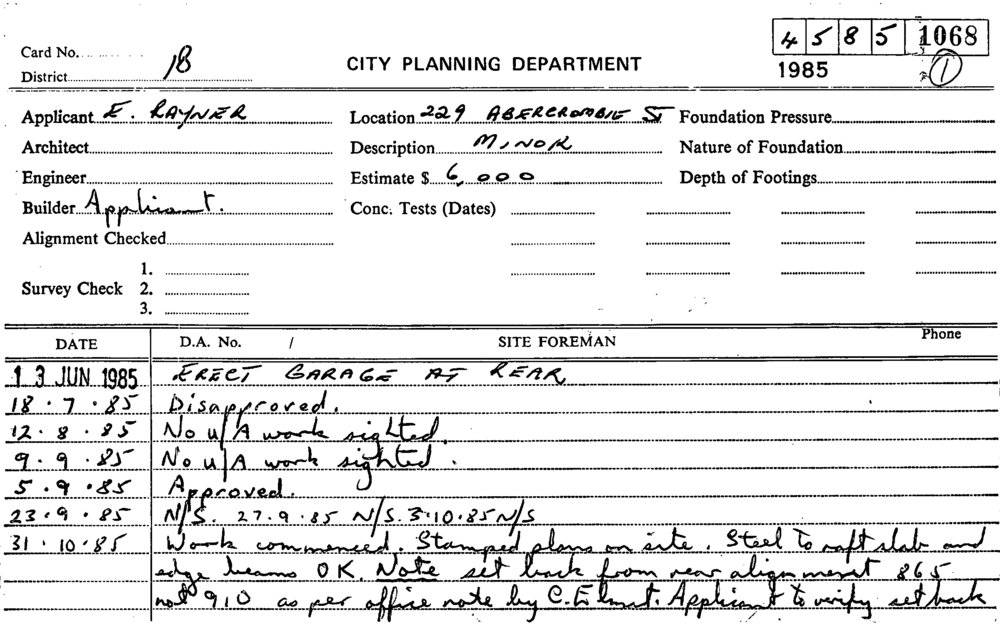 4 5 8 5 1068
Card No.
1985
1
District 1B
CITY PLANNING DEPARTMENT
Applicant E. RAYNER
Location 229 ABERCROMBIE ST
Foundation Pressure
Architect
Description MINOR
Nature of Foundation
Engineer
Estimate $ 6,000
Depth of Footings
Builder Applicant.
Conc. Tests (Dates)
Alignment Checked
Survey Check
1.
2.
3.
DATE D.A. No. / SITE FOREMAN Phone
13 JUN 1985 ERECT GARAGE AT REAR
18.7.85 Disapproved.
12.8.85 No u/A work sighted.
9.9.85 No u/A work sighted.
5.9.85 Approved.
23.9.85 N/S. 27.9.85 N/S. 3.10.85 N/S
31.10.85 Work commenced. Stamped plans on site. Steel to raft slab and
edge beams OK. Note set back from rear alignment 865
not 910 as per office note by C. Applicant to verify set back